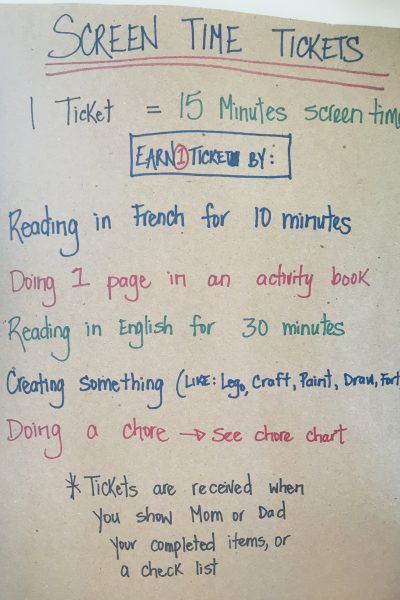 SCREEN TIME TICKETS
1 Ticket = 15 Minutes screen time
EARN 1 TICKET BY:
Reading in French for 10 minutes
Doing 1 page in an activity book
Reading in English for 30 minutes
Creating something (LIKE: Lego, Craft, Paint, Draw, Fort
Doing a chore → see chore chart
* Tickets are received when
you show Mom or Dad
your completed items, or
a check list